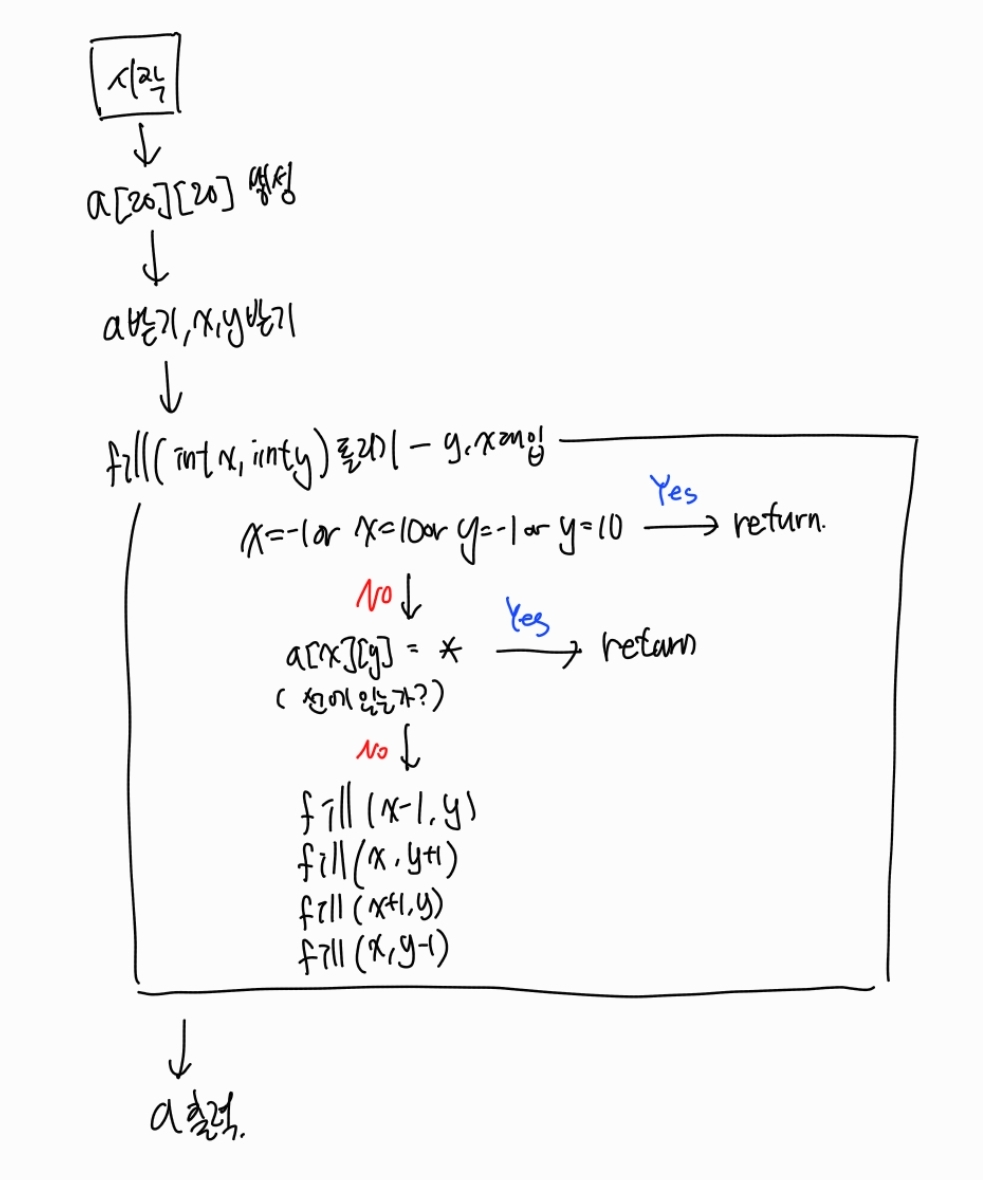 시작
a[20][20] 생성
a받기, x,y받기
fill(int x, int y) 돌리기 - y,x 대입
x=-1 or x=10 or y=-1 or y=10 Yes return.
No
a[x][y] = * Yes return
(선에 있는가?)
No
fill(x-1,y)
fill(x,y+1)
fill(x+1,y)
fill(x,y-1)
a출력.